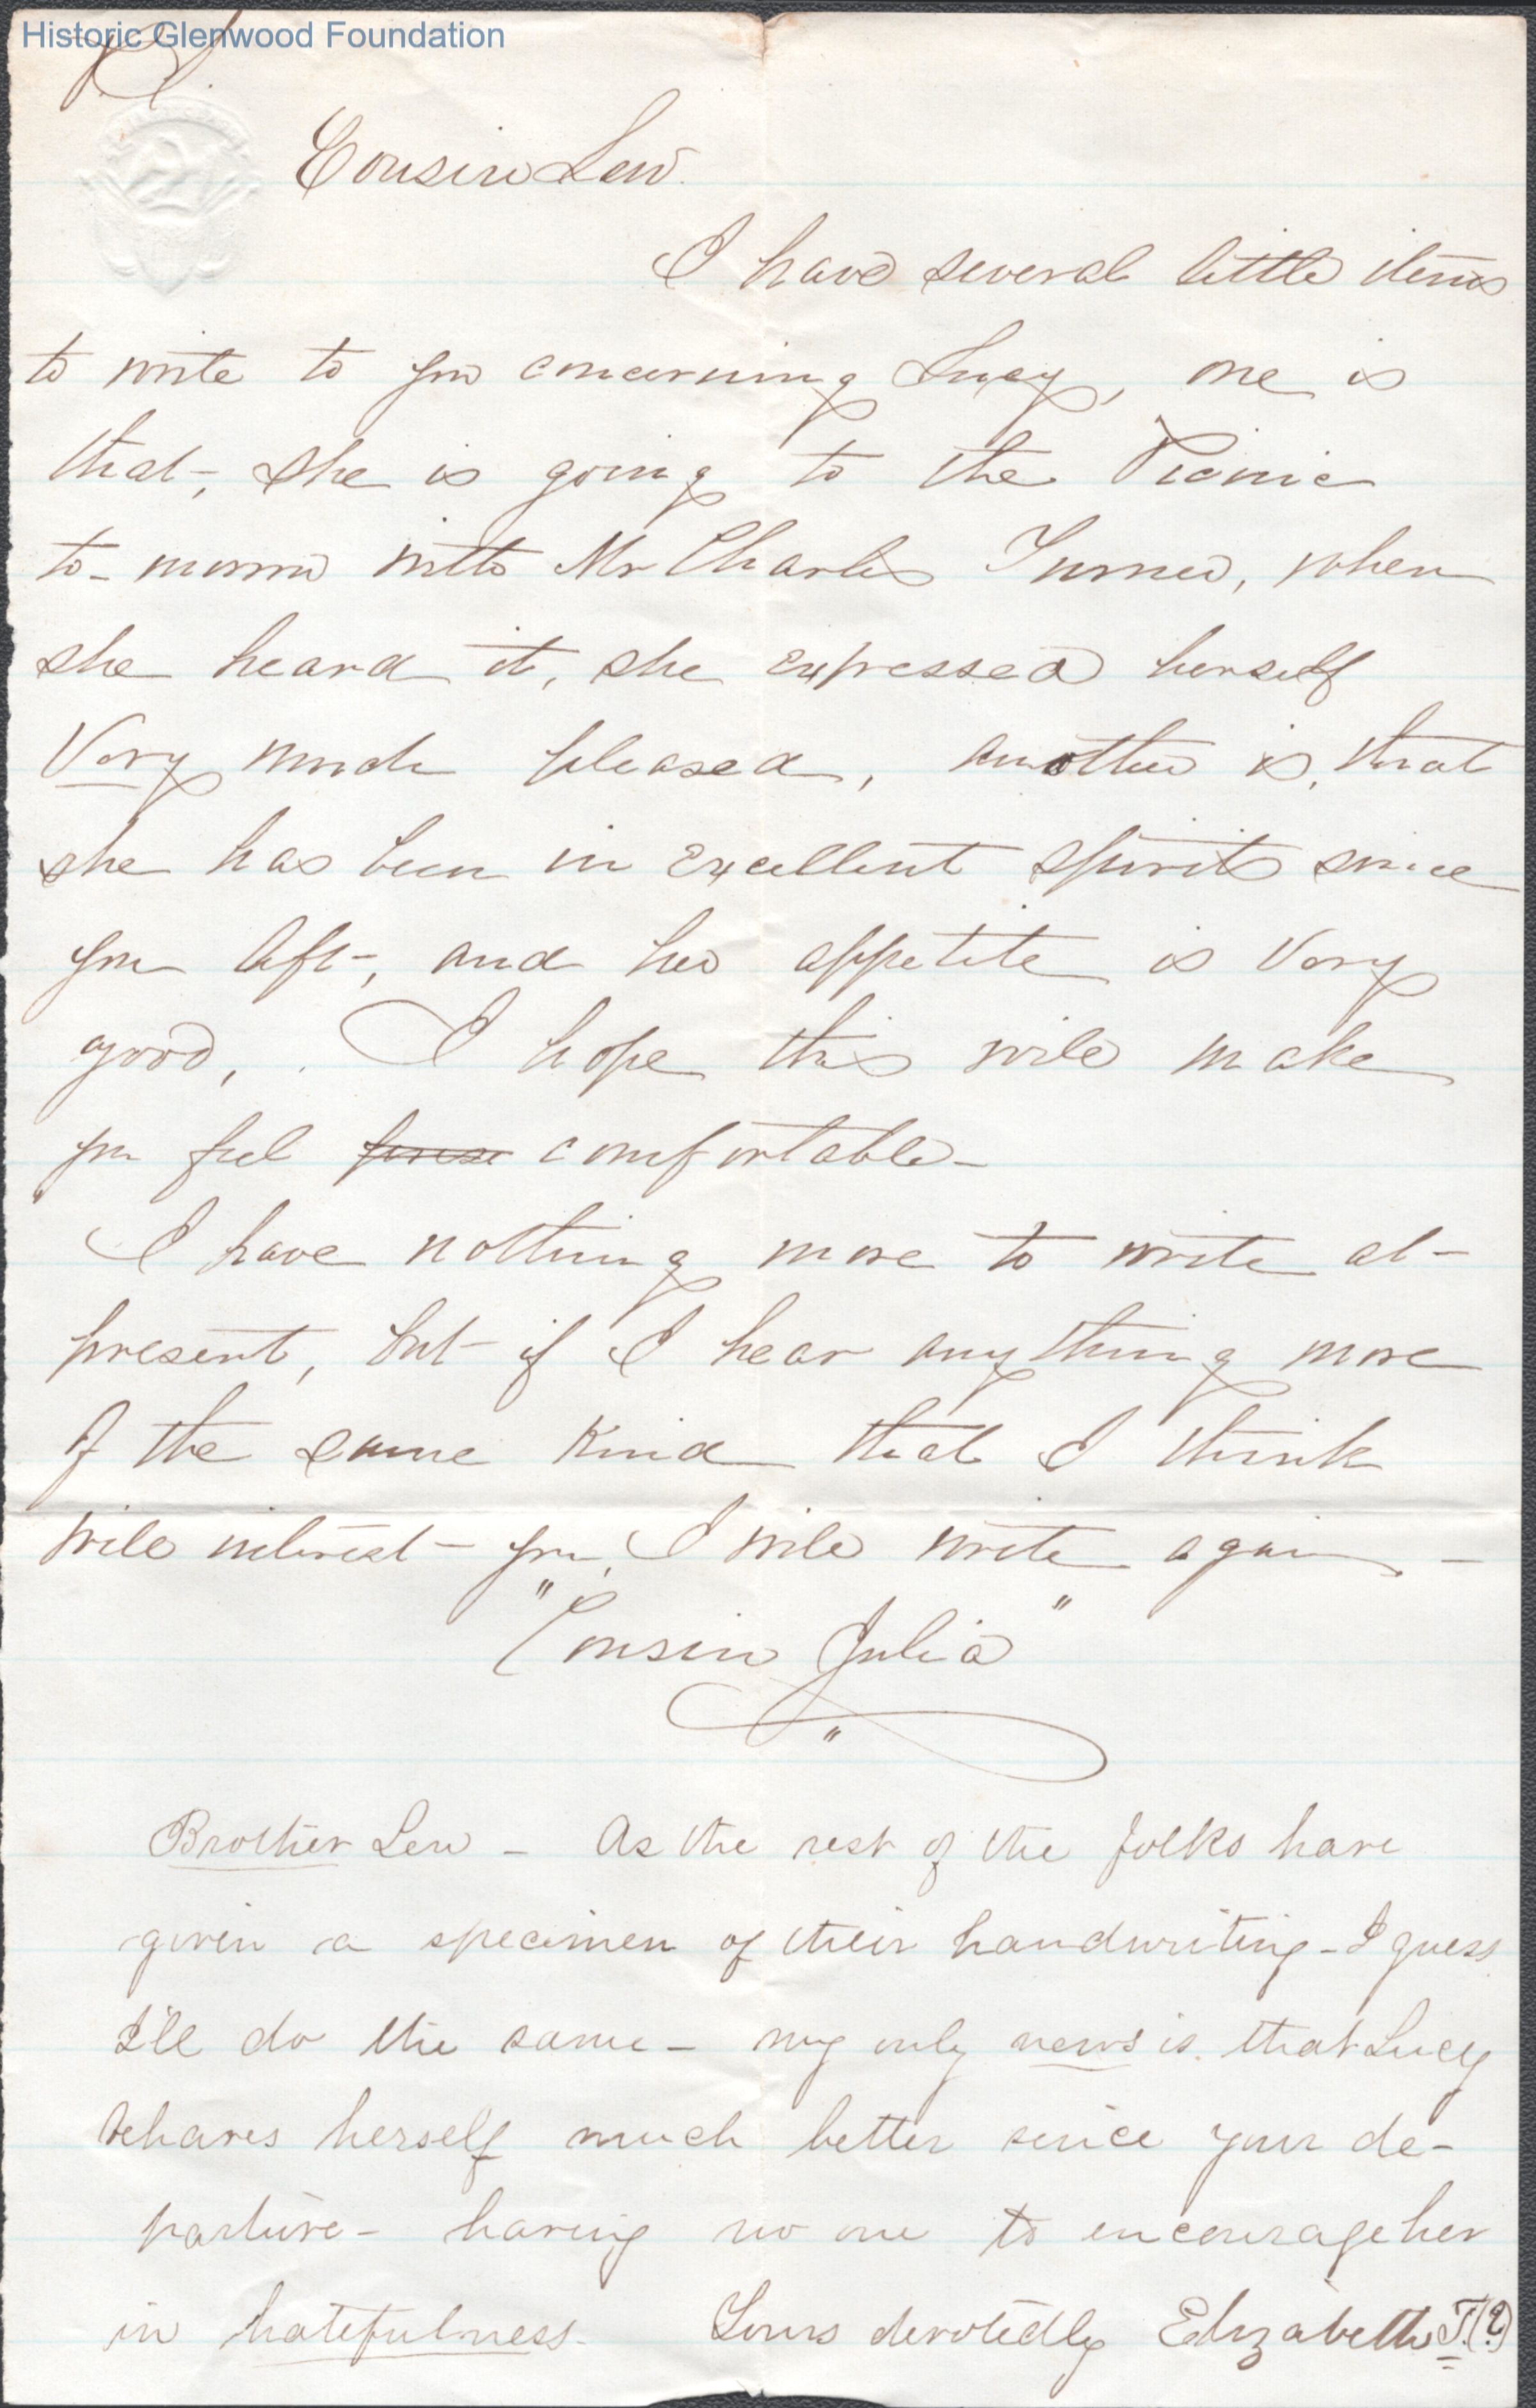 Historic Glenwood Foundation
Cousin Lew.
I have several little items
to write to you concerning Lucy, one is
that, she is going to the Picnic
to-morrow with Mr Charles Turner, when
she heard it, she expressed herself
Very much pleased, another is, that
she has been in excellent spirits since
you left, and her appetite is Very
good, I hope this will make
you feel comfortable-
I have nothing more to write at
present, but if I hear anything more
of the same kind that I think
will interest you, I will write again -
"Cousin Julia"
Brother Lew - As the rest of the folks have
given a specimen of their handwriting - I guess
I'll do the same - my only news is that Lucy
behaves herself much better since your de-
parture - having no one to encourage her
in hatefulness. Yours devotedly Elizabeth T.(?)